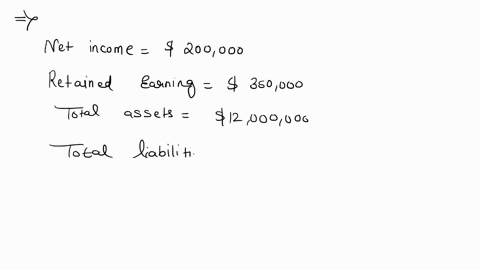 =>
Net income = $ 200,000
Retained Earning = $ 350,000
Total assets = $12,000,000
Total liabiliti